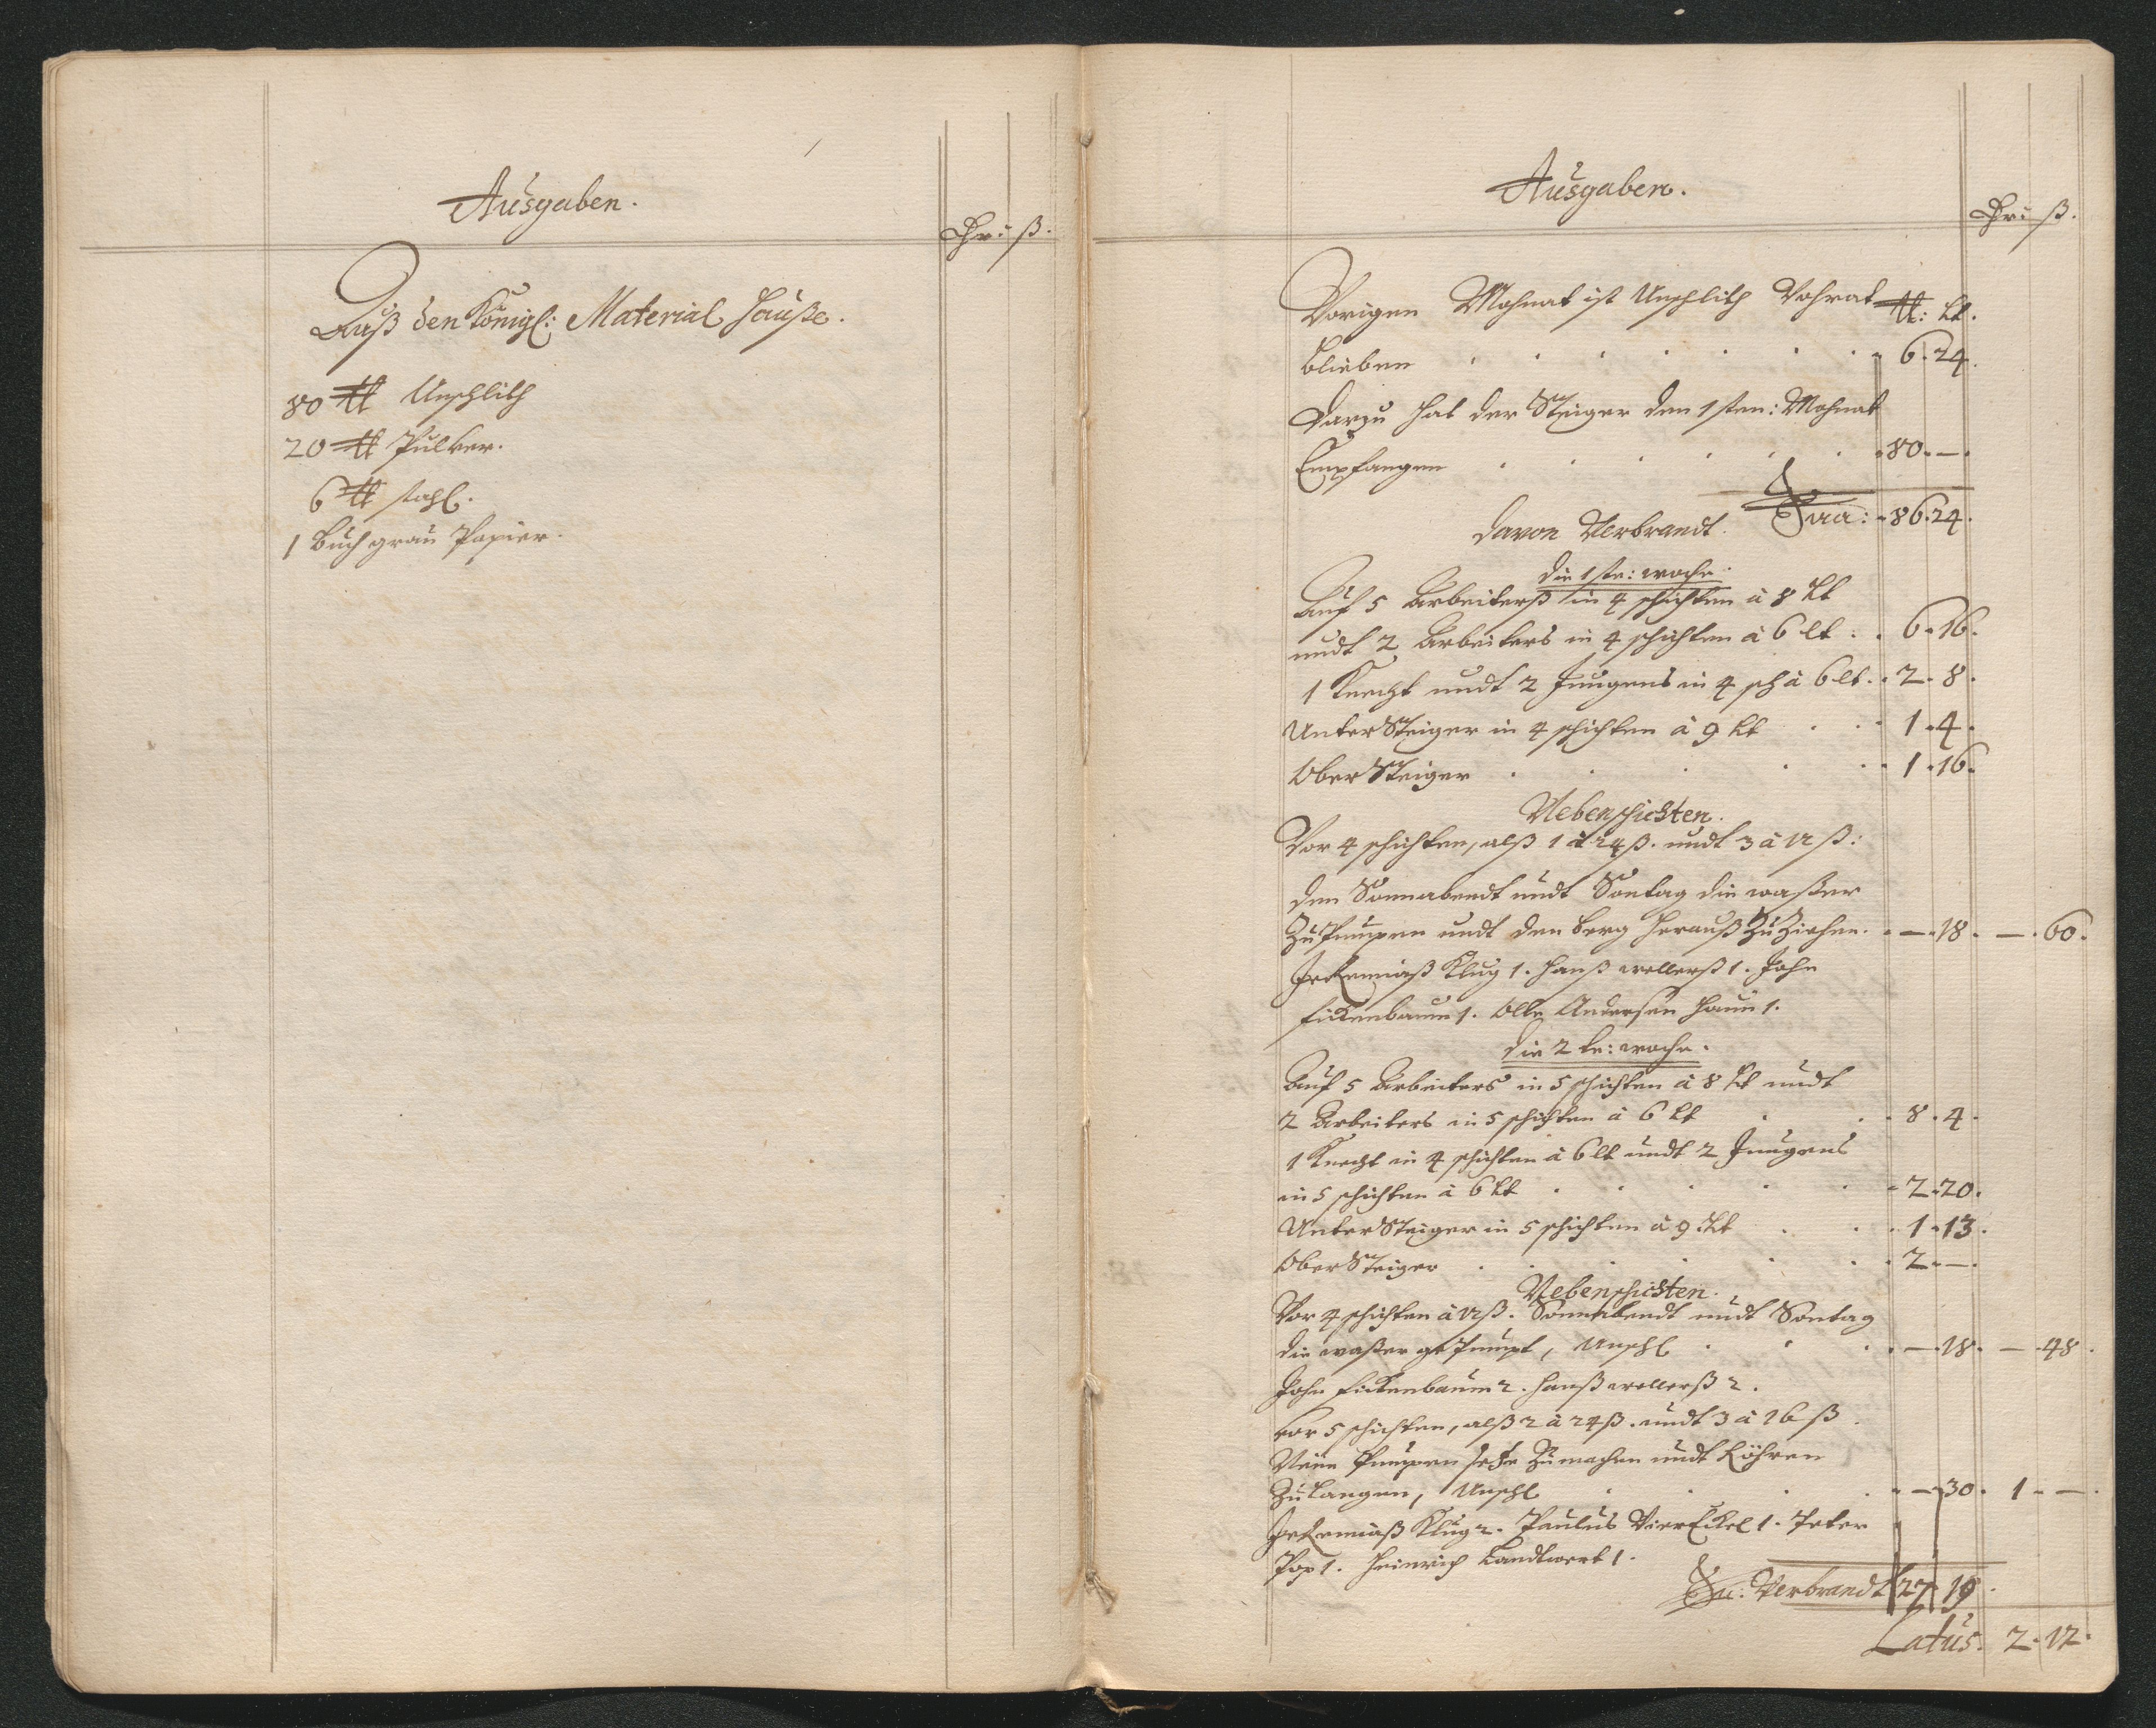 Ausgaben.
Thr: ß.
Auß den Königl: Material Hauße.
80 ℔ Unschlith
20 ℔ Pulver.
6 ℔ stahl.
1 buch grau Papier.
Ausgaben.
Thr: ß.
Vorigen Mohnat ist Unschlith Vohrat ℔: Lt.
blieben . . . . . . . 6. 24.
Darzu hat der Steiger den 1sten: Mohnat
Empfangen . . . . . . 80. —.
Sũa: 86. 24.
Davon Verbrandt.
die 1ste: woche.
Auf 5 Arbeiterß in 4 schichten à 8 Lt
undt 2 Arbeiters in 4 schichten à 6 lt . . 6. 16.
1 Knecht undt 2 Jungens in 4 sch à 6 lt. . 2. 8.
Unter Steiger in 4 schichten à 9 Lt . . 1. 4.
Ober Steiger . . . . . 1. 16.
Nebenschichten.
Vor 4 schichten, alß 1 à 24 ß. undt 3 à 12 ß:
den Sonnabendt undt Sontag die waßer
Zu Pumpen undt den berg herauß Zu Ziehen. — 18. —. 60.
Jeremiaß Klug 1. Hanß wellerß 1. John
Fickenbaum 1. Olle Andersen Haun 1.
die 2te: woche.
Auf 5 Arbeiters in 5 schichten à 8 Lt undt
2 Arbeiters in 5 schichten à 6 Lt . . 8. 4.
1 Knecht in 4 schichten à 6 lt undt 2 Jungens
in 5 schichten à 6 Lt . . . . . 2. 20.
Unter Steiger in 5 schichten à 9. Lt . . 1. 13.
Ober Steiger . . . . . . 2. —.
Nebenschichten.
Vor 4 schichten à 12 ß. Sonnabendt undt Sontag
die waßer ge Pumpt, Unschl . . . —. 18. —. 48.
John Fickenbaum 2. Hanß wellerß 2.
vor 5 schichten, alß 2 à 24 ß. undt 3 à 16 ß.
Neue Pumpen Zu machen undt Röhren
Zu langen, Unschl . . . . — 30. 1. —.
Jeremiaß Klug 2. Paulus Vier Eckel 1. Peter
Pop 1. Heinrich Landtwert 1.
Sũ: Verbrandt 27 19.
Latus. 2. 12.